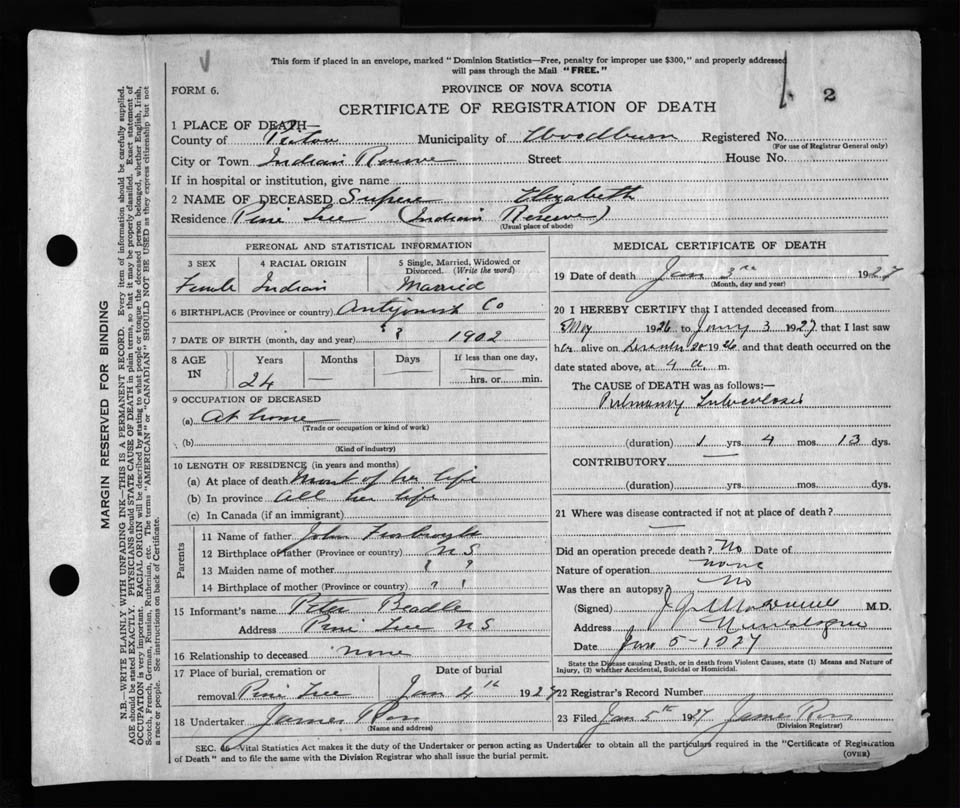 This form if placed in an envelope, marked "Dominion Statistics—Free, penalty for improper use $300," and properly addressed
will pass through the Mail "FREE."
FORM 6.
PROVINCE OF NOVA SCOTIA
2
CERTIFICATE OF REGISTRATION OF DEATH
1 PLACE OF DEATH—
County of Pictou Municipality of Woodburn Registered No.
(For use of Registrar General only)
City or Town Indian Reserve Street House No.
If in hospital or institution, give name
2 NAME OF DECEASED Elizabeth
Residence Pine Tree (Indian Reserve)
(Usual place of abode)
PERSONAL AND STATISTICAL INFORMATION
3 SEX 4 RACIAL ORIGIN 5 Single, Married, Widowed or
Divorced. (Write the word)
Female Indian Married
6 BIRTHPLACE (Province or country) Co
7 DATE OF BIRTH (month, day and year) ? 1902
8 AGE Years Months Days If less than one day,
IN 24 — — hrs. or min.
9 OCCUPATION OF DECEASED
(a) At home
(Trade or occupation or kind of work)
(b)
(Kind of industry)
10 LENGTH OF RESIDENCE (in years and months)
(a) At place of death Most of her life
(b) In province All her life
(c) In Canada (if an immigrant)
Parents
11 Name of father John
12 Birthplace of father (Province or country) N S
13 Maiden name of mother ? ?
14 Birthplace of mother (Province or country) ? ?
15 Informant's name Peter Beadle
Address Pine Tree N S
16 Relationship to deceased none
17 Place of burial, cremation or Date of burial
removal Pine Tree Jan 4th 1927
18 Undertaker James Ross
(Name and address)
MEDICAL CERTIFICATE OF DEATH
19 Date of death Jan 3rd 1927
(Month, day and year)
20 I HEREBY CERTIFY that I attended deceased from
May 1926 to Jany 3 1927 that I last saw
her alive on December 1926 and that death occurred on the
date stated above, at 9 a. m.
The CAUSE of DEATH was as follows:—
Pulmonary Tuberculosis
(duration) 1 yrs. 4 mos. 13 dys.
CONTRIBUTORY —
(duration) yrs. mos. dys.
21 Where was disease contracted if not at place of death?
—
Did an operation precede death? No Date of
Nature of operation none
Was there an autopsy? No
(Signed) M.D.
Address
Date Jan 5-1927
State the Disease causing Death, or in death from Violent Causes, state (1) Means and Nature of
Injury, (2) whether Accidental, Suicidal or Homicidal.
22 Registrar's Record Number
23 Filed Jan 5th 1927 James Ross
(Division Registrar)
SEC. 46—Vital Statistics Act makes it the duty of the Undertaker or person acting as Undertaker to obtain all the particulars required in the "Certificate of Registration
of Death" and to file the same with the Division Registrar who shall issue the burial permit.
(OVER)
MARGIN RESERVED FOR BINDING
N.B.—WRITE PLAINLY WITH UNFADING INK—THIS IS A PERMANENT RECORD. Every item of information should be carefully supplied.
AGE should be stated EXACTLY. PHYSICIANS should STATE CAUSE OF DEATH in plain terms, so that it may be properly classified. Exact statement of
OCCUPATION is very important. RACIAL ORIGIN will be described by stating to what people or tongue the deceased person belonged, whether English, Irish,
Scotch, French, German, Russian, Ruthenian, etc. The terms "AMERICAN" or "CANADIAN" SHOULD NOT BE USED as they express citizenship but not
a race or people. See instructions on back of Certificate.